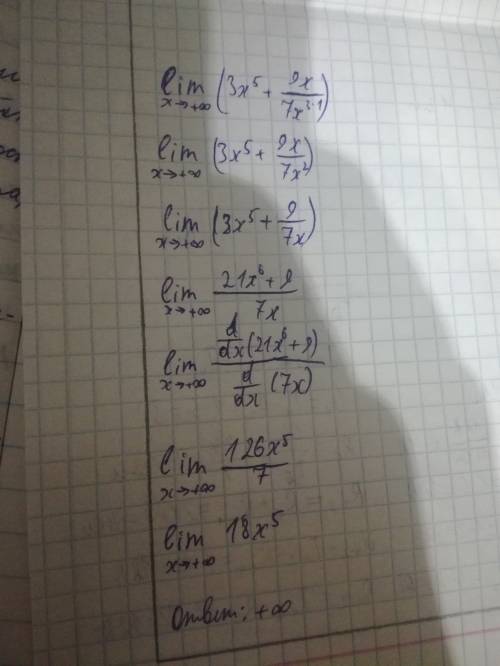 lim x→+∞ (3x⁵ + 9x/7x³⁻¹)
lim x→+∞ (3x⁵ + 9x/7x²)
lim x→+∞ (3x⁵ + 9/7x)
lim x→+∞ 21x⁶ + 9/7x
lim x→+∞ d/dx(21x⁶ + 9)/d/dx (7x)
lim x→+∞ 126x⁵/7
lim x→+∞ 18x⁵
Ответ: +∞